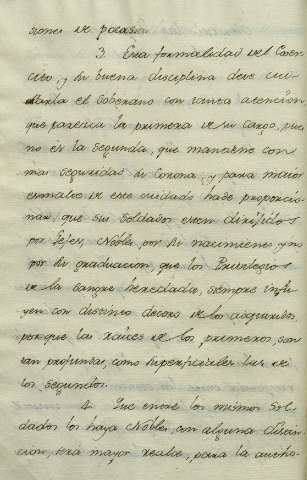 siones de
3. Esta formalidad del Exer-
cito, y su buena disciplina deve cui-
darla el Soberano con tanta atencion
que parezca la primera de su cargo, pues
no es la segunda, que mantiene con
mas seguridad su Corona, y para maior
de este cuidado hade proporcio-
nar, que sus Soldados esten dirijidos
por Jefes, Nobles por su nacimiento, y no
por su graduacion, que los Privilegios
de la sangre heredada, siempre influ
yen con distinto decoro de los adquiridos,
porque las raices de los primeros, son
tan profundas, como superficiales las de
los segundos.
4. Que entre los mismos Sol-
dados los haya Nobles con alguna distin-
cion, será mayor realce, para la autho-